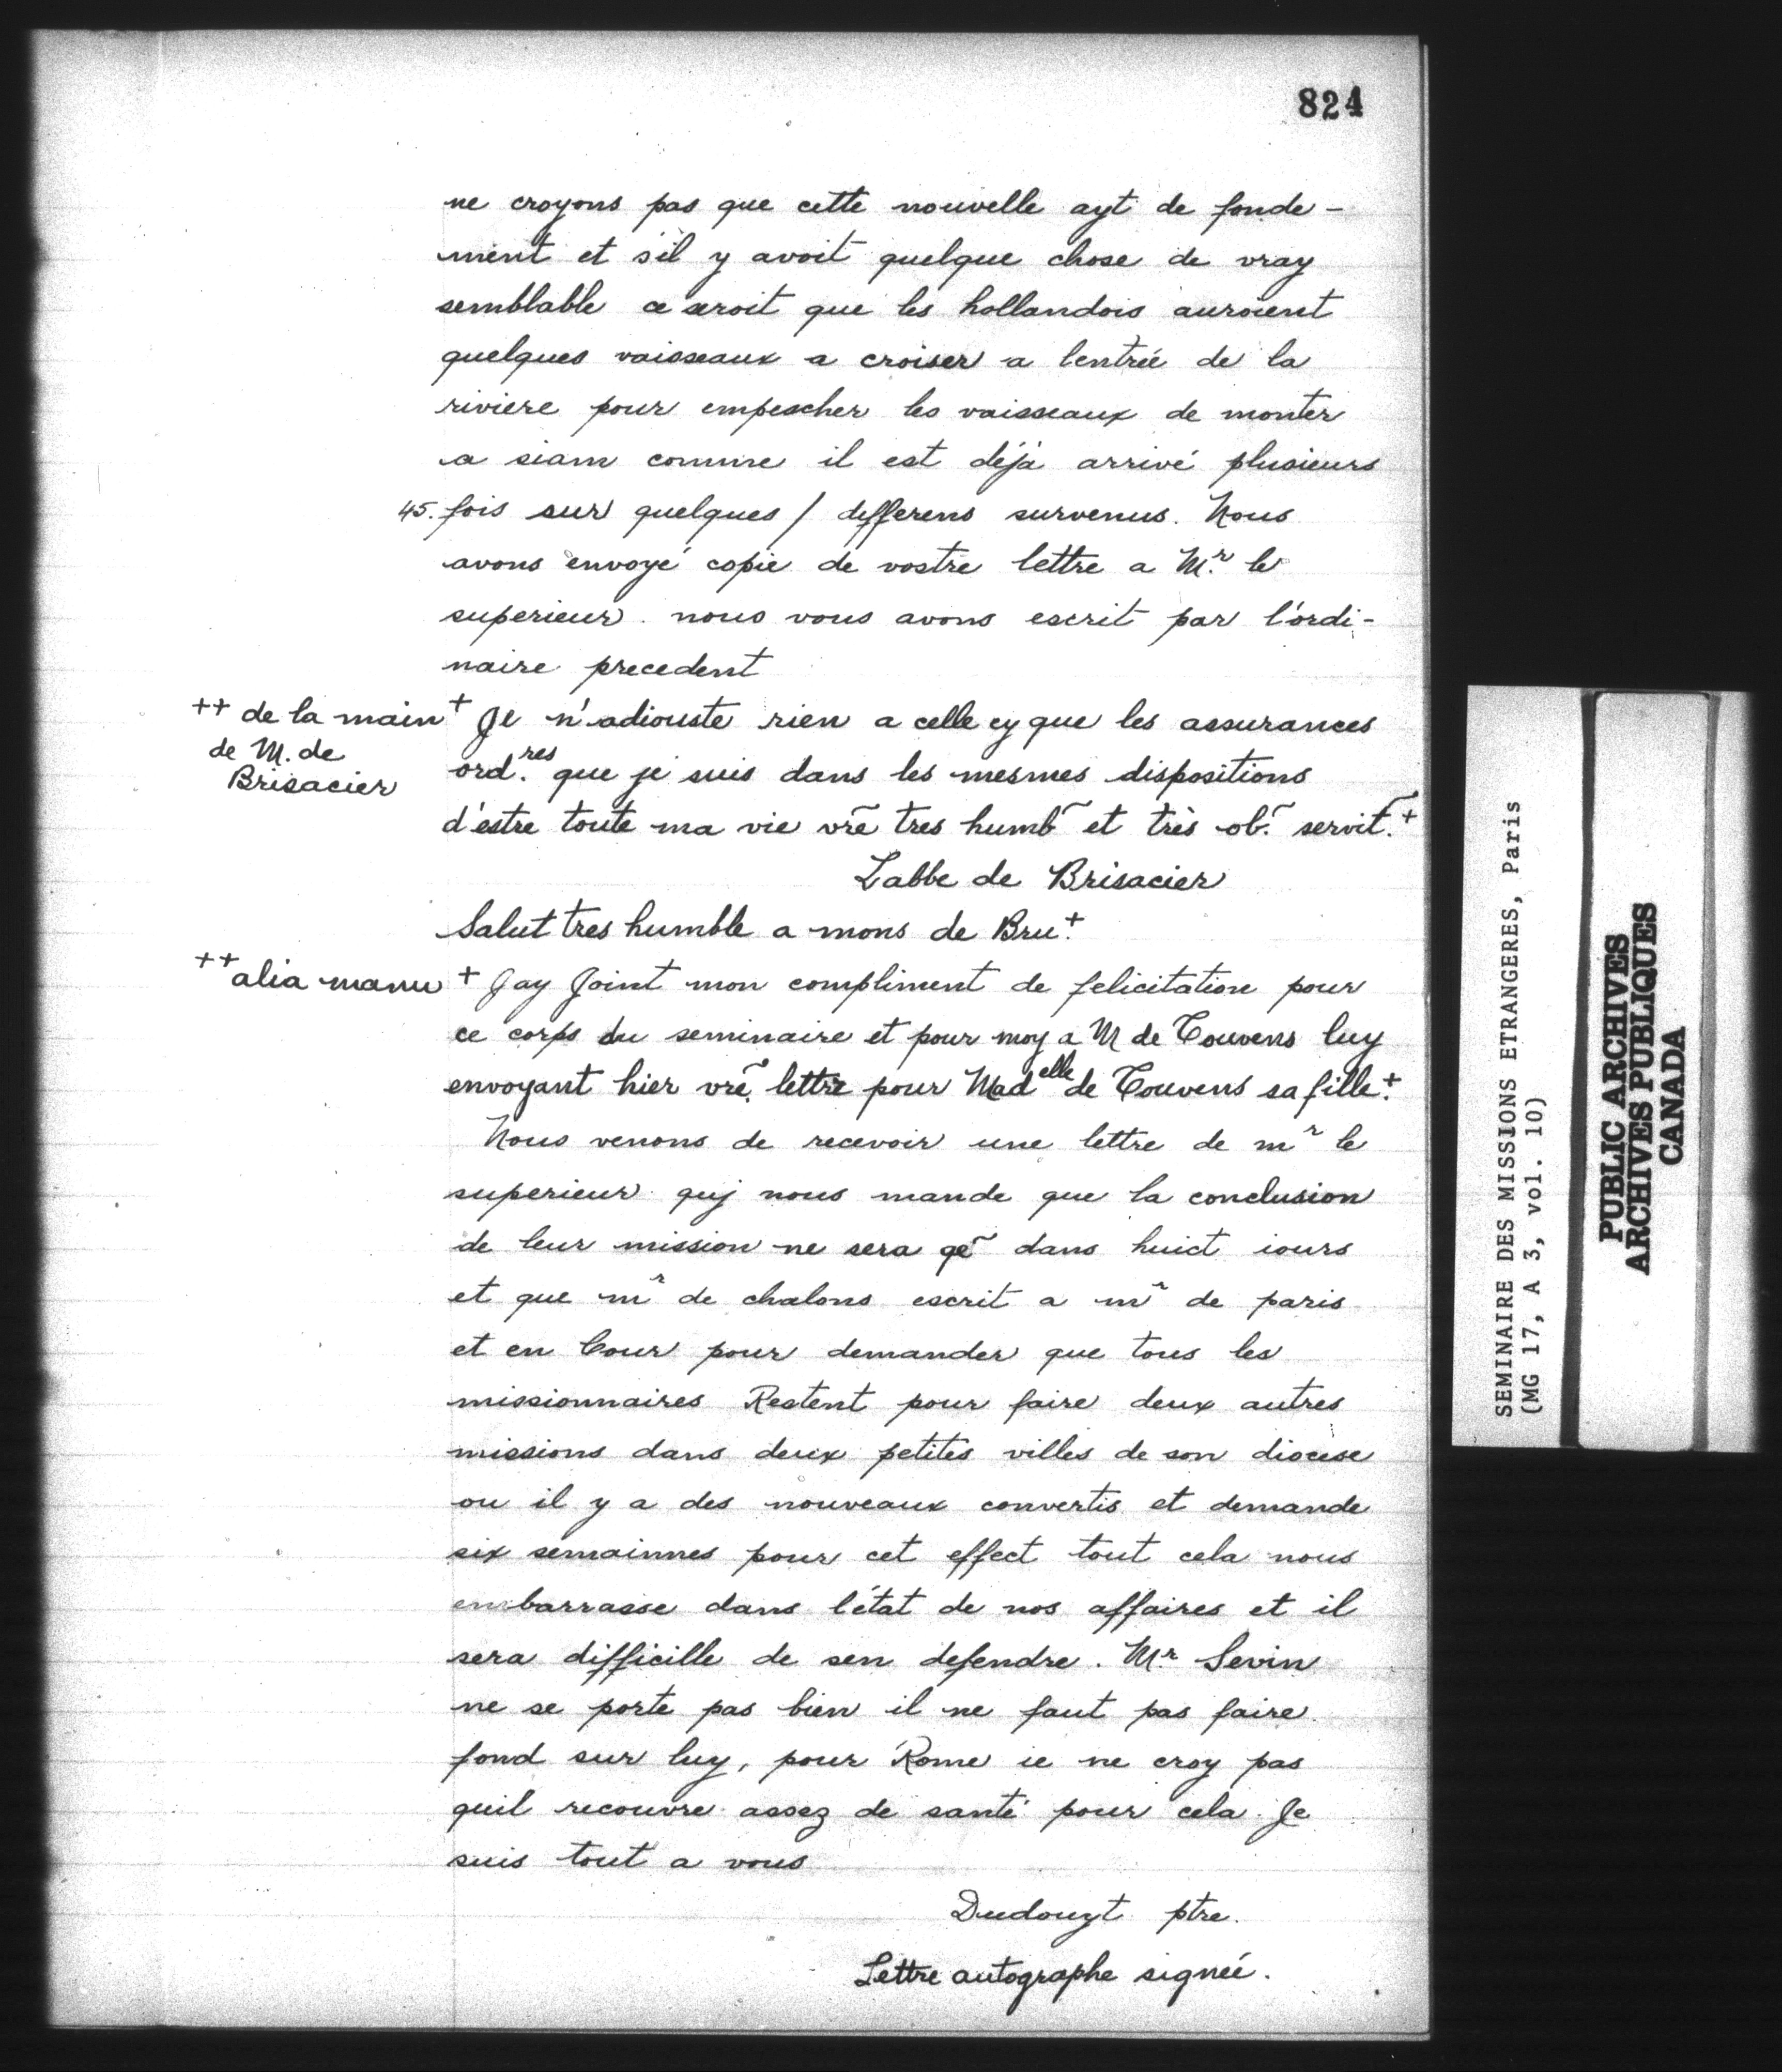 824
ne croyons pas que cette nouvelle ayt de fonde-
ment et s'il y avoit quelque chose de vray
semblable ce seroit que les hollandois auroient
quelques vaisseaux a croiser a lentrée de la
riviere pour empescher les vaisseaux de monter
a siam comme il est déjà arrivé plusieurs
45. fois sur quelques / differens survenus. Nous
avons envoyé copie de vostre lettre a Mr. le
superieur. nous vous avons escrit par l'ordi-
naire precedent
++ de la main
de M. de
Brisacier
+ Je n'adiouste rien a celle cy que les assurances
ord.res que je suis dans les mesmes dispositions
d'estre toute ma vie vre~ tres humb~ et très ob.~ servit~.+
Labbe de Brisacier
Salut tres humble a mons de Bru+.
++ alia manu
+ Jay Joint mon compliment de felicitation pour
ce corps du seminaire et pour moy a M de Touvens luy
envoyant hier vre~. lettre pour Madelle de Touvens sa fille.+
Nous venons de recevoir une lettre de mr le
superieur quj nous mande que la conclusion
de leur mission ne sera qe~ dans huict iours
et que mr de chalons escrit a mr de paris
et en Cour pour demander que tous les
missionnaires Restent pour faire deux autres
missions dans deux petites villes de son diocese
ou il y a des nouveaux convertis et demande
six semainnes pour cet effect tout cela nous
embarrasse dans l'état de nos affaires et il
sera difficille de sen defendre. Mr. Sevin
ne se porte pas bien il ne faut pas faire
fond sur luy, pour Rome ie ne croy pas
quil recouvre assez de santé pour cela. Je
suis tout a vous
Dudouyt ptre.
Lettre autographe signée.
SEMINAIRE DES MISSIONS ETRANGERES, Paris
(MG 17, A 3, vol. 10)
PUBLIC ARCHIVES
ARCHIVES PUBLIQUES
CANADA